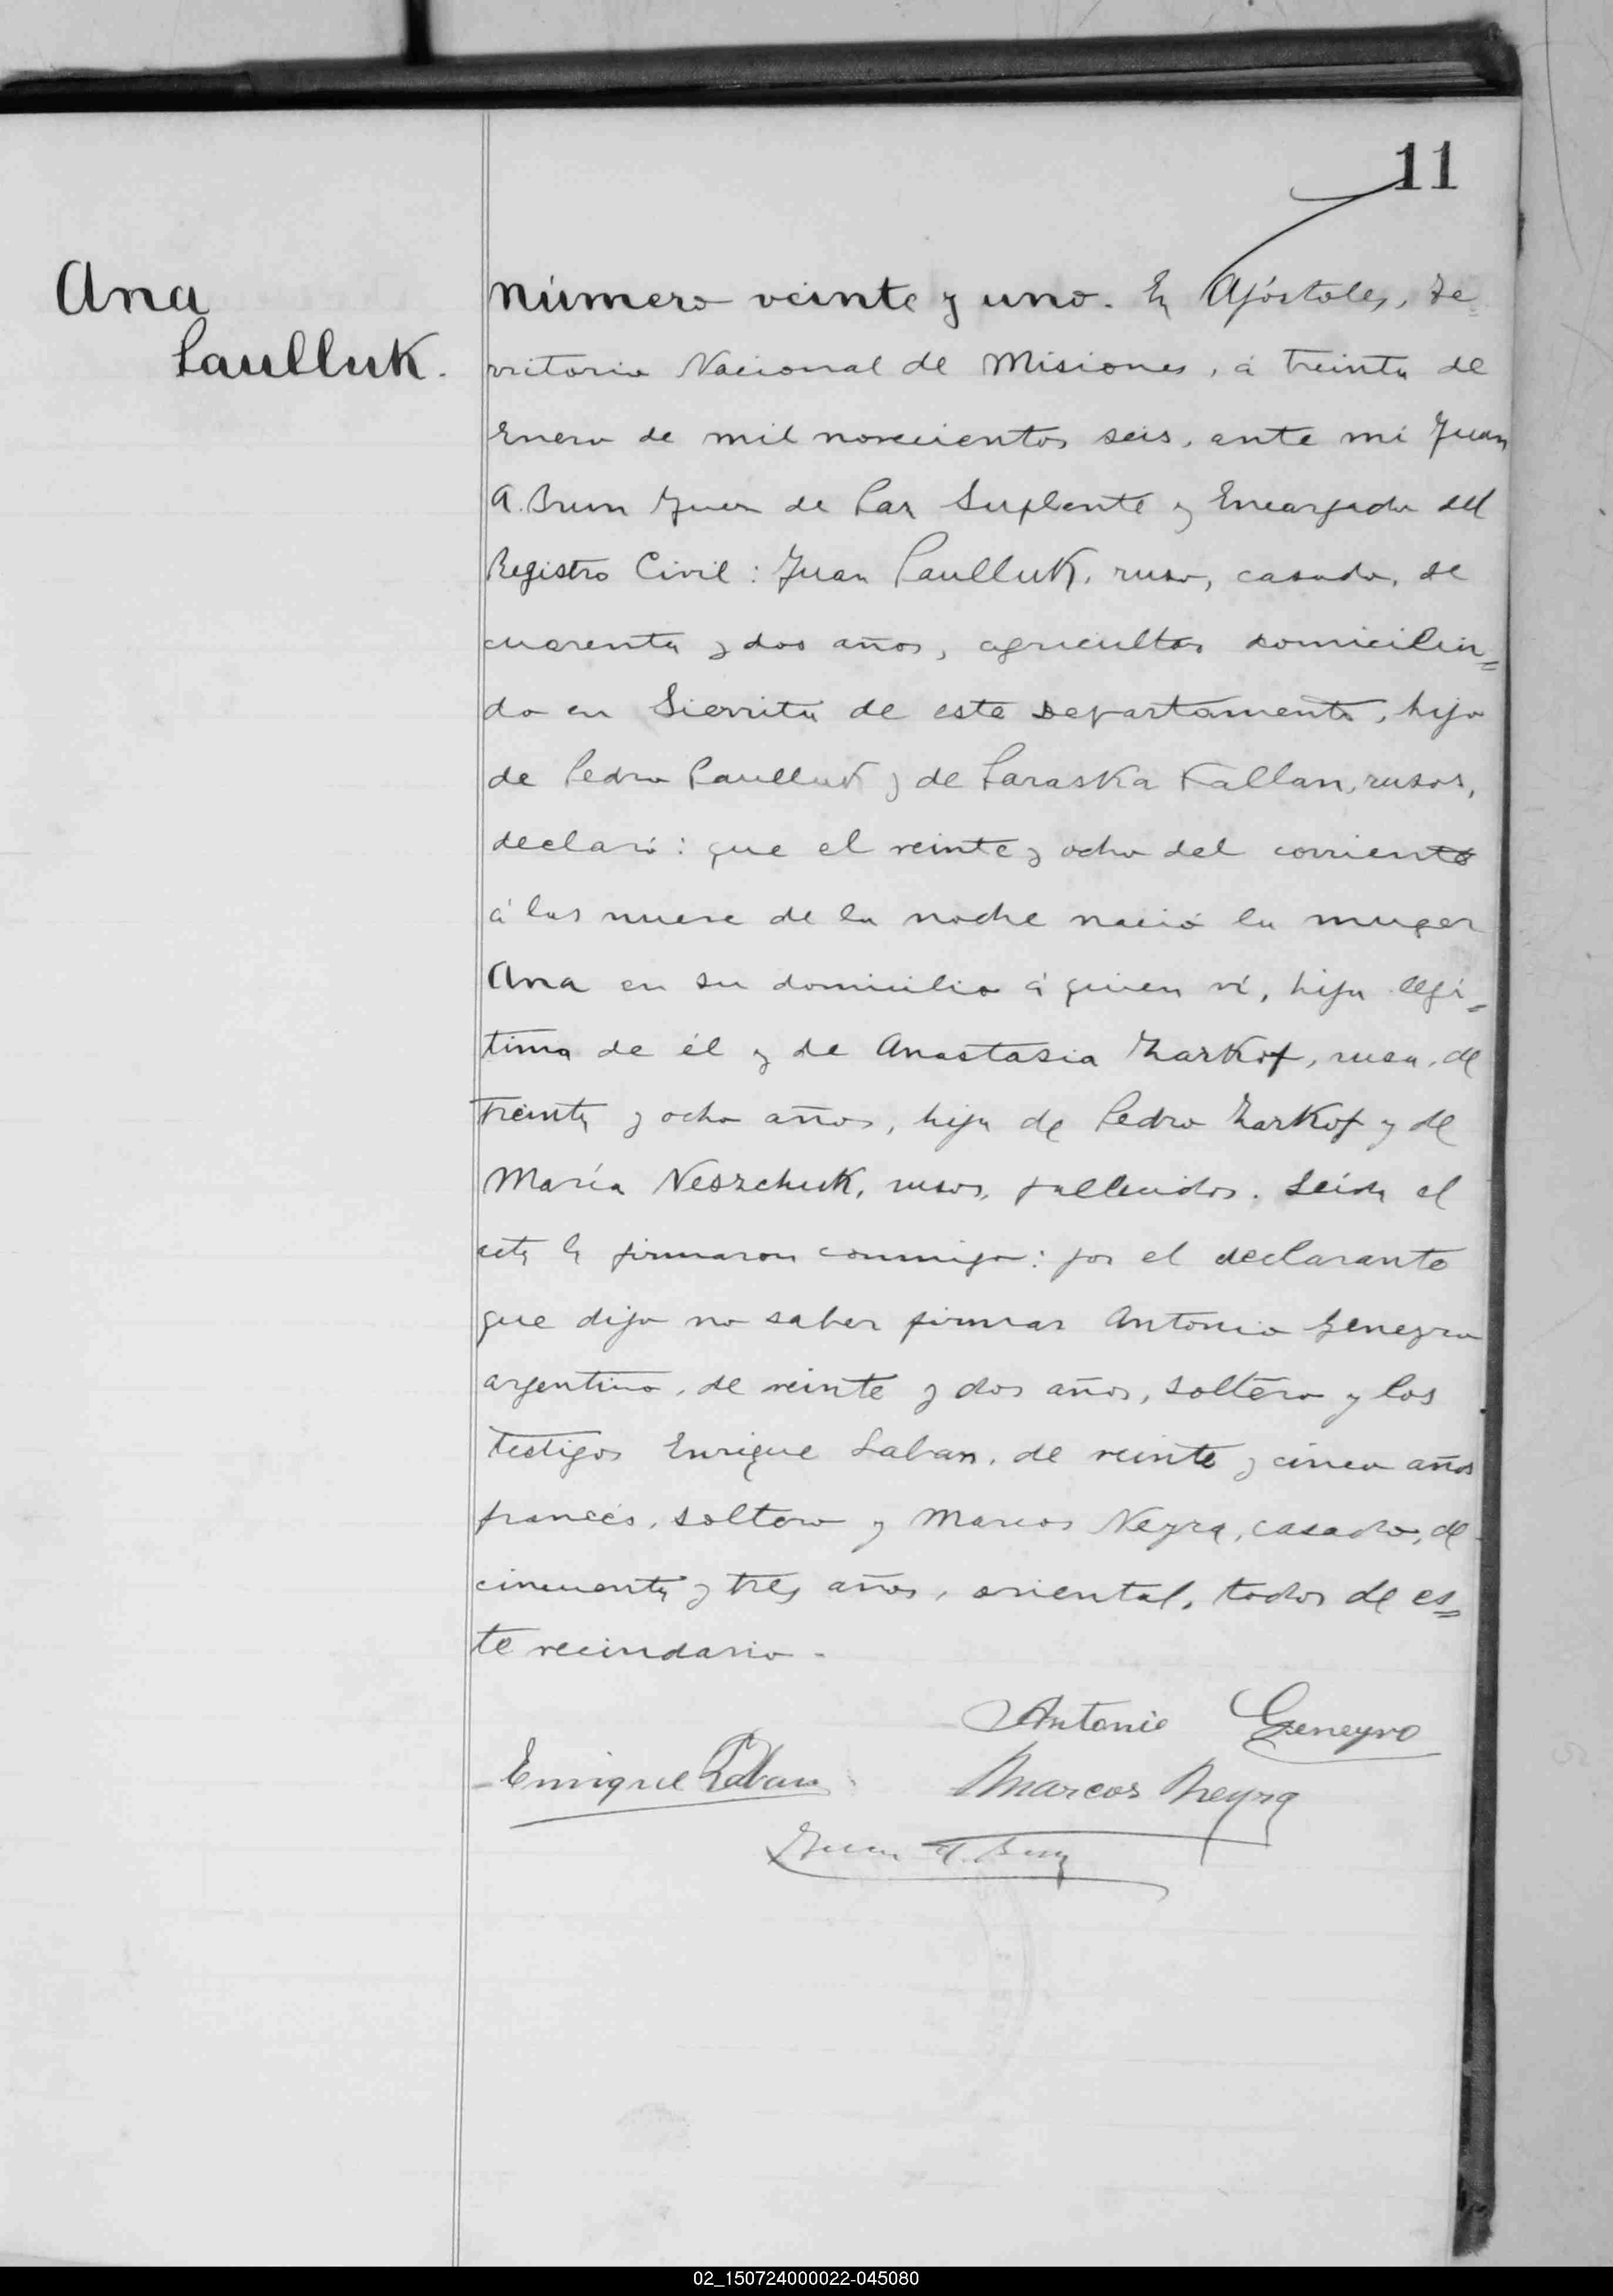 11
Ana
Paulluk.
Número veinte y uno. En Apóstoles, Te=
rritorio Nacional de Misiones, á treinta de
Enero de mil novecientos seis, ante mi Juan
A. Brun Juez de Paz Suplente y Encargado del
Registro Civil: Juan Paulluk, ruso, casado, de
cuarenta y dos años, agricultor domicilia=
do en Sierrita de este Departamento, hijo
de Pedro Paulluk y de Paraska Fallan, rusos,
declaró: que el veinte y ocho del corriente
á las nueve de la noche nació la muger
Ana en su domicilio á quien ví, hija legí=
tima de él y de Anastasia Zarkof, rusa, de
treinta y ocho años, hija de Pedro Zarkof y de
María Neszchuk, rusos, fallecidos. Leida el
acta la firmaron conmigo: por el declarante
que dijo no saber firmar Antonio Geneyro
argentino, de veinte y dos años, soltero y los
testigos Enrique Laban, de veinte y cinco años
francés, soltero y Marcos Neyra, casado, de
cincuenta y tres años, oriental, todos de es=
te vecindario.
Antonio Geneyro
Enrique Laban
Marcos Neyra
Juan A. Brun
02_150724000022-045080